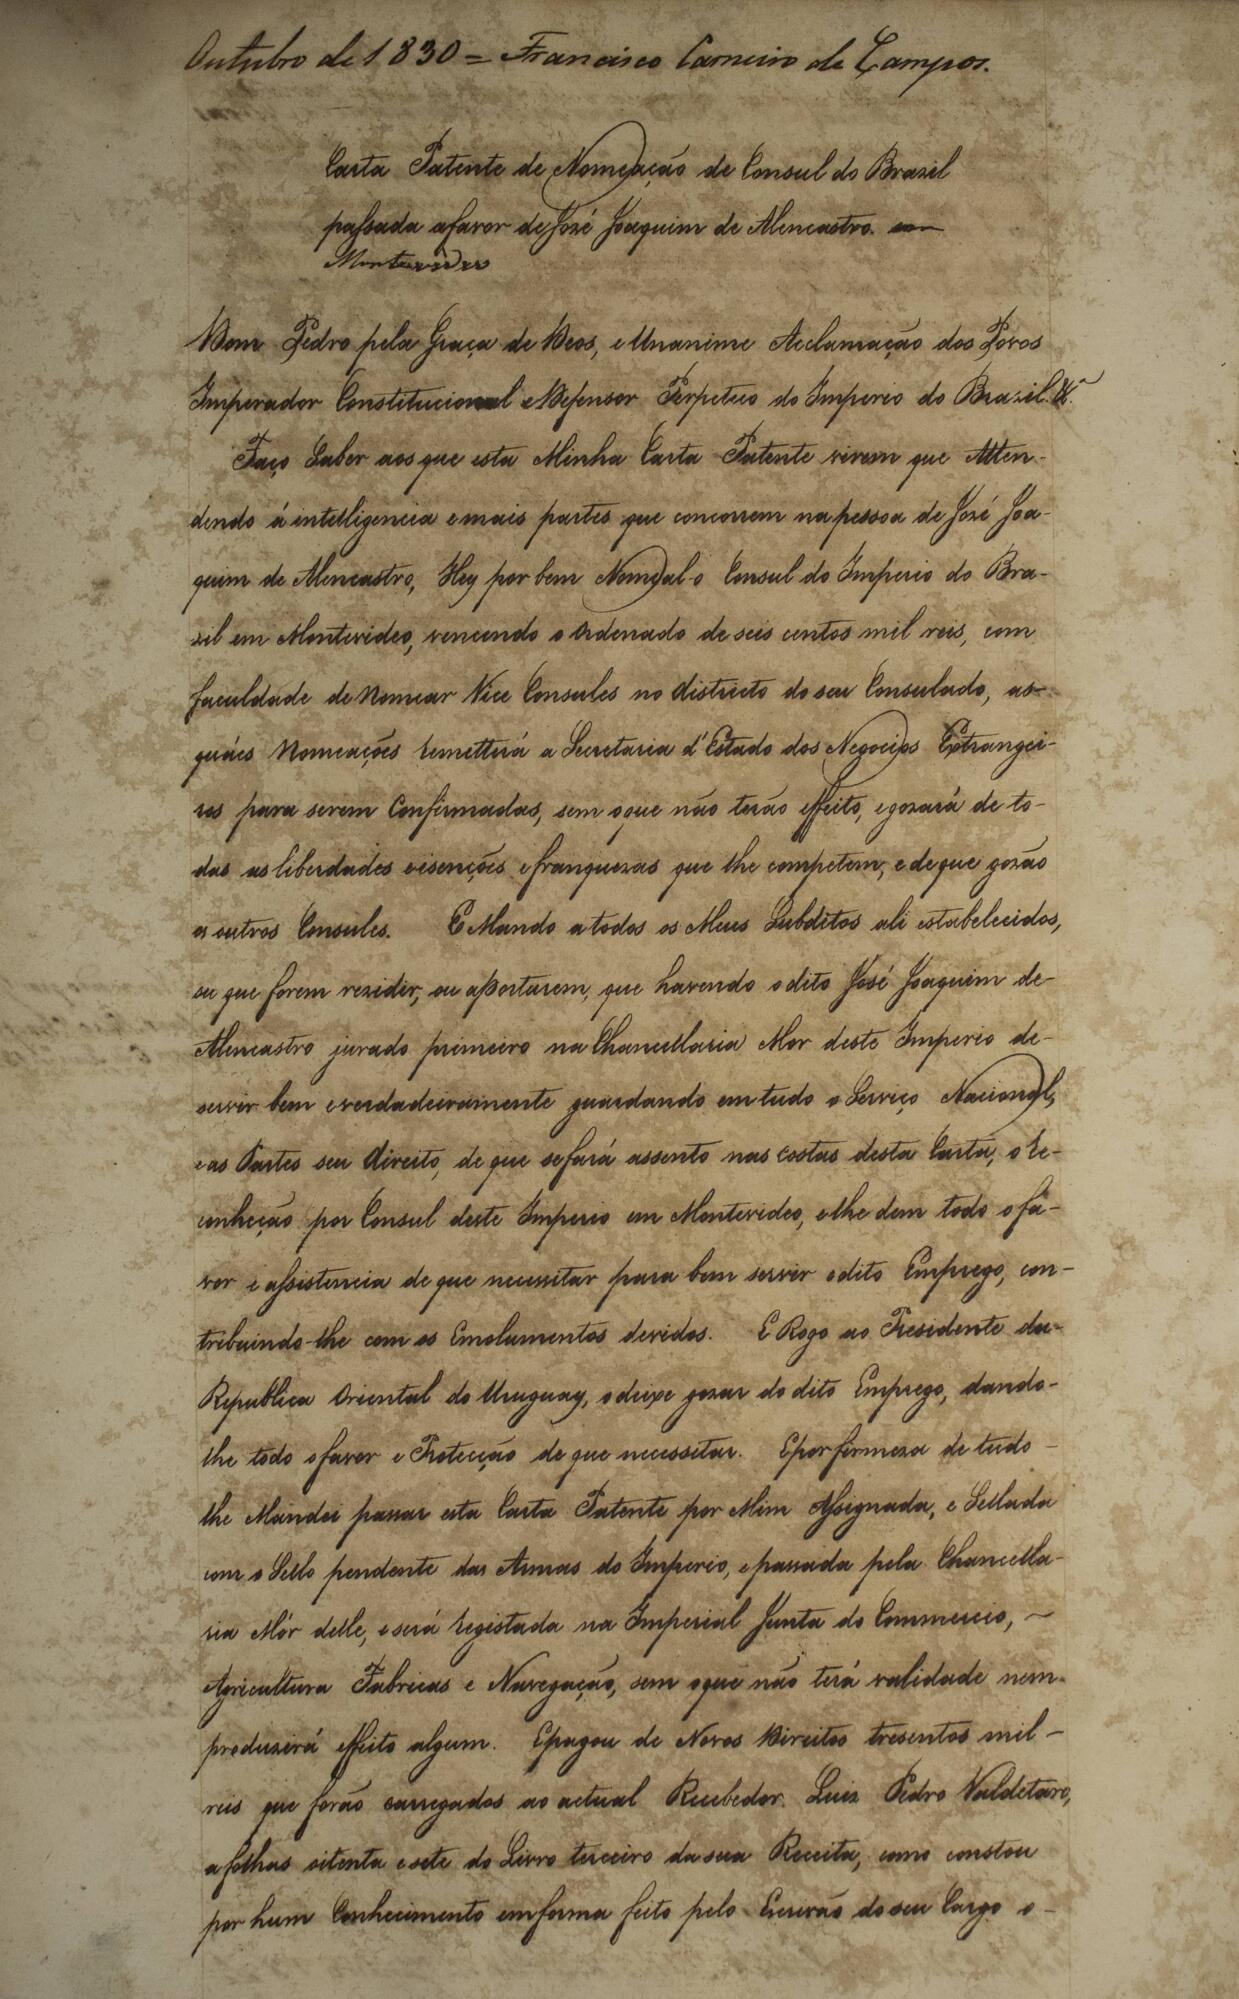 Outubro de 1830 = Francisco Carneiro de Campos.
Carta Patente de Nomeação de Consul do Brazil
passada afavor de José Joaquim de Alencastro. em
Montevideo
Dom Pedro pela Graça de Deos, e Unanime Acclamação dos Povos
Imperador Constitucional e Defensor Perpetuo do Imperio do Brazil. &ª.
Faço Saber aos que esta Minha Carta Patente virem que Atten-
dendo á intelligencia e mais partes que concorrem na pessoa de José Joa-
quim de Alencastro, Hey por bem Nomeal-o Consul do Imperio do Bra-
zil em Montevideo, vencendo o Ordenado de seis centos mil reis, com
faculdade de Nomear Vice Consules no districto do seu Consulado, as-
quáes Nomeações remetterá a Secretaria d'Estado dos Negocios Extrangei-
ros para serem Confirmadas, sem oque não terão effeito, e gozará de to-
das as liberdades e isenções e franquezas que lhe competem, e de que gozão
os outros Consules. E Mando a todos os Meus Subditos ali estabelecidos,
ou que forem rezidir, ou aportarem, que havendo o dito José Joaquim de-
Alencastro jurado primeiro na Chancellaria Mor deste Imperio de-
servir bem e verdadeiramente guardando em tudo o Serviço Nacional,
e as Partes seu direito, de que se fará assento nas costas desta Carta, o re-
conheção por Consul deste Imperio em Montevideo, e lhe dem todo o fa-
vor e assistencia de que necessitar para bem servir o dito Emprego, con-
tribuindo-lhe com os Emolumentos devidos. E Rogo ao Presidente da-
Republica Oriental do Uruguay, o deixe gozar do dito Emprego, dando-
lhe todo o favor e Protecção de que necessitar. E por firmeza de tudo -
lhe Mandei passar esta Carta Patente por Mim Assignada, e Sellada
com o Sello pendente das Armas do Imperio, e passada pela Chancella-
ria Mór delle, e será registada na Imperial Junta do Commercio, ~
Agricultura Fabricas e Navegação, sem oque não terá validade nem-
produzirá effeito algum. E pagou de Novos Direitos tresentos mil -
reis que forão carregados ao actual Recebedor. Luiz Pedro Valdetaro,
a folhas sitenta e sete do Livro terceiro da sua Receita, como constou
por hum Conhecimento em forma feito pelo Escrivão do seu Cargo o -